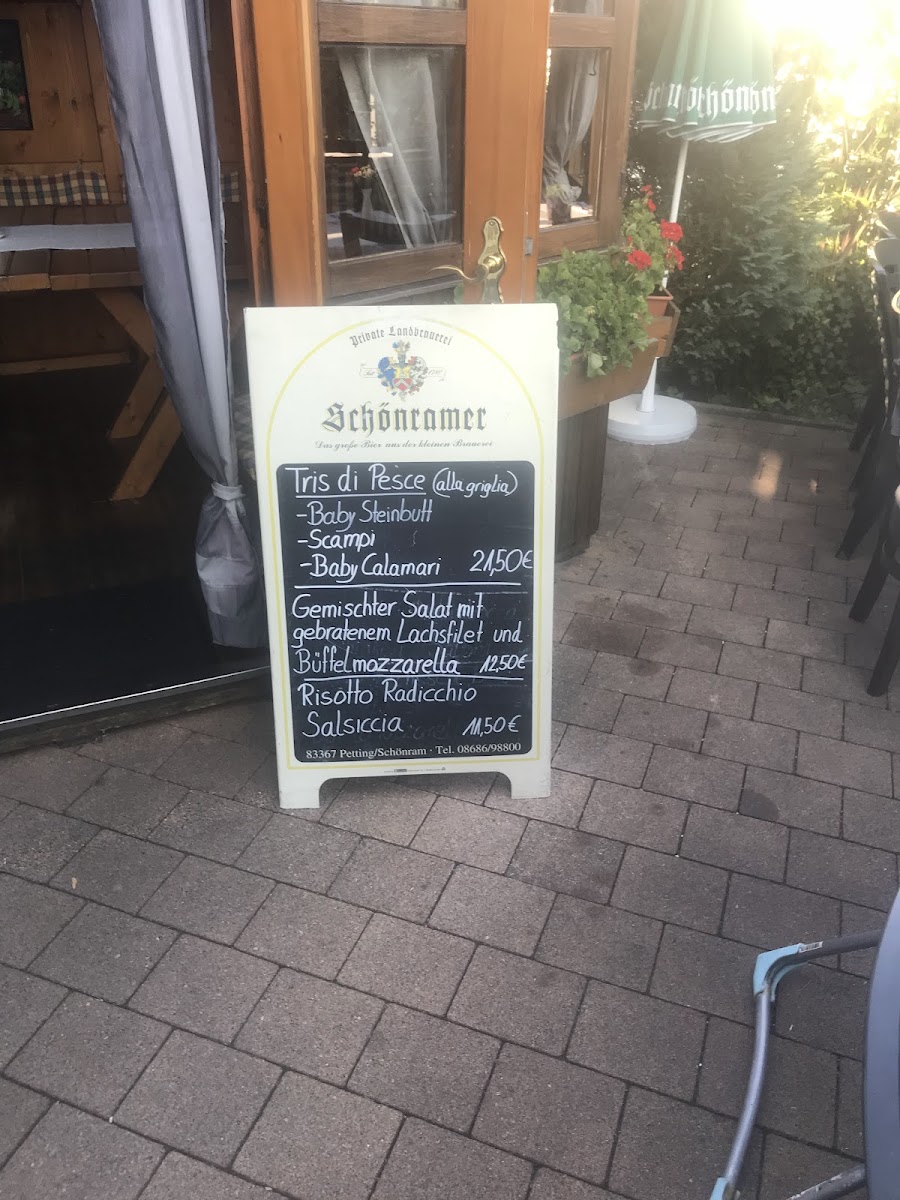 Private Landbrauerei
Schönramer
Das große Bier aus der kleinen Brauerei
Tris di Pesce (alla griglia)
-Baby Steinbutt
-Scampi
-Baby Calamari 21,50€
Gemischter Salat mit
gebratenem Lachsfilet und
Büffelmozzarella 12,50€
Risotto Radicchio
Salsiccia 11,50€
83367 Petting/Schönram · Tel. 08686/98800